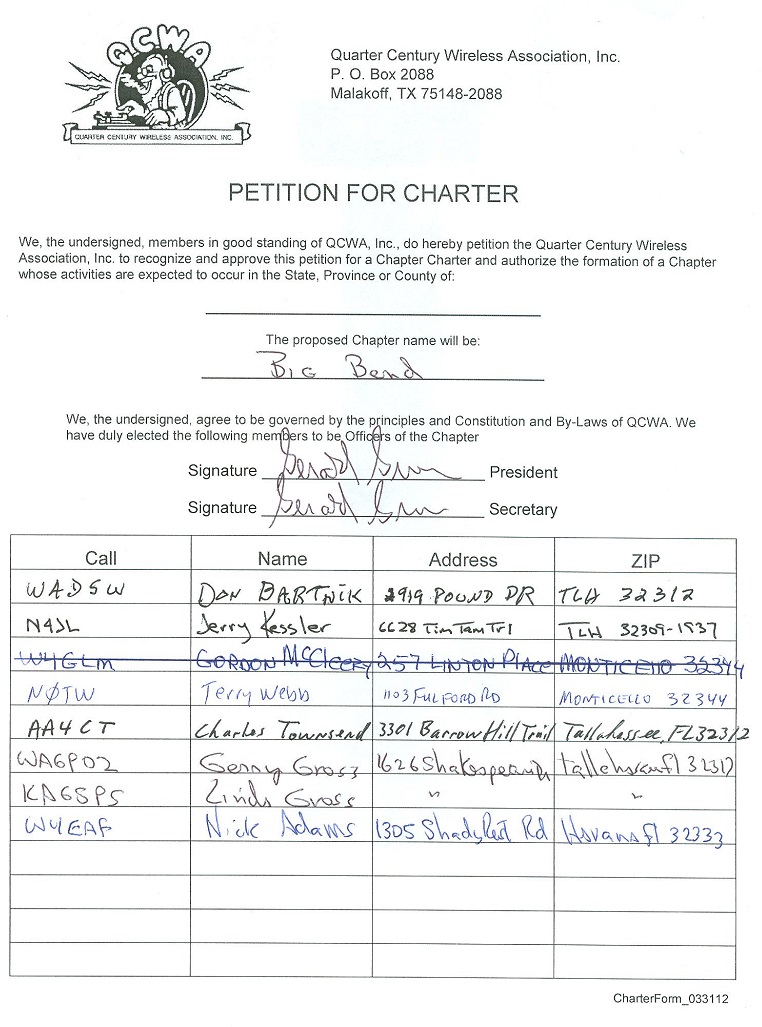 QCWA
QUARTER CENTURY WIRELESS ASSOCIATION, INC.
Quarter Century Wireless Association, Inc.
P. O. Box 2088
Malakoff, TX 75148-2088
PETITION FOR CHARTER
We, the undersigned, members in good standing of QCWA, Inc., do hereby petition the Quarter Century Wireless
Association, Inc. to recognize and approve this petition for a Chapter Charter and authorize the formation of a Chapter
whose activities are expected to occur in the State, Province or County of:
The proposed Chapter name will be:
Big Bend
We, the undersigned, agree to be governed by the principles and Constitution and By-Laws of QCWA. We
have duly elected the following members to be Officers of the Chapter
Signature President
Signature Secretary
Call Name Address ZIP
WAD5W Don BARTNIK 2919 POUND DR TLH 32312
N4JL Jerry Kessler 6628 Tim Tam Trl TLH 32309-1937
W4GLM GORDON McCleery 257 LINTON PlACE MONTICEllO 32344
NØTW Terry Webb 1103 FULFORD RD MONTICELLO 32344
AA4CT Charles Townsend 3301 Barrow Hill Trail Tallahassee, FL 32312
WA6POZ Gerry Gross 1626 fl
KA6SPS Linda Gross " "
W4EAF Nick Adams 1305 Shady Rest Rd Havana fl 32333
CharterForm_033112